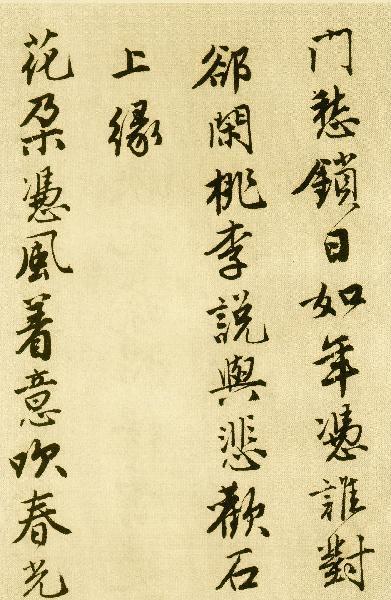 門愁鎖日如年憑誰對
郤閑桃李說與悲歡石
上緣
花朵憑風着意吹春光